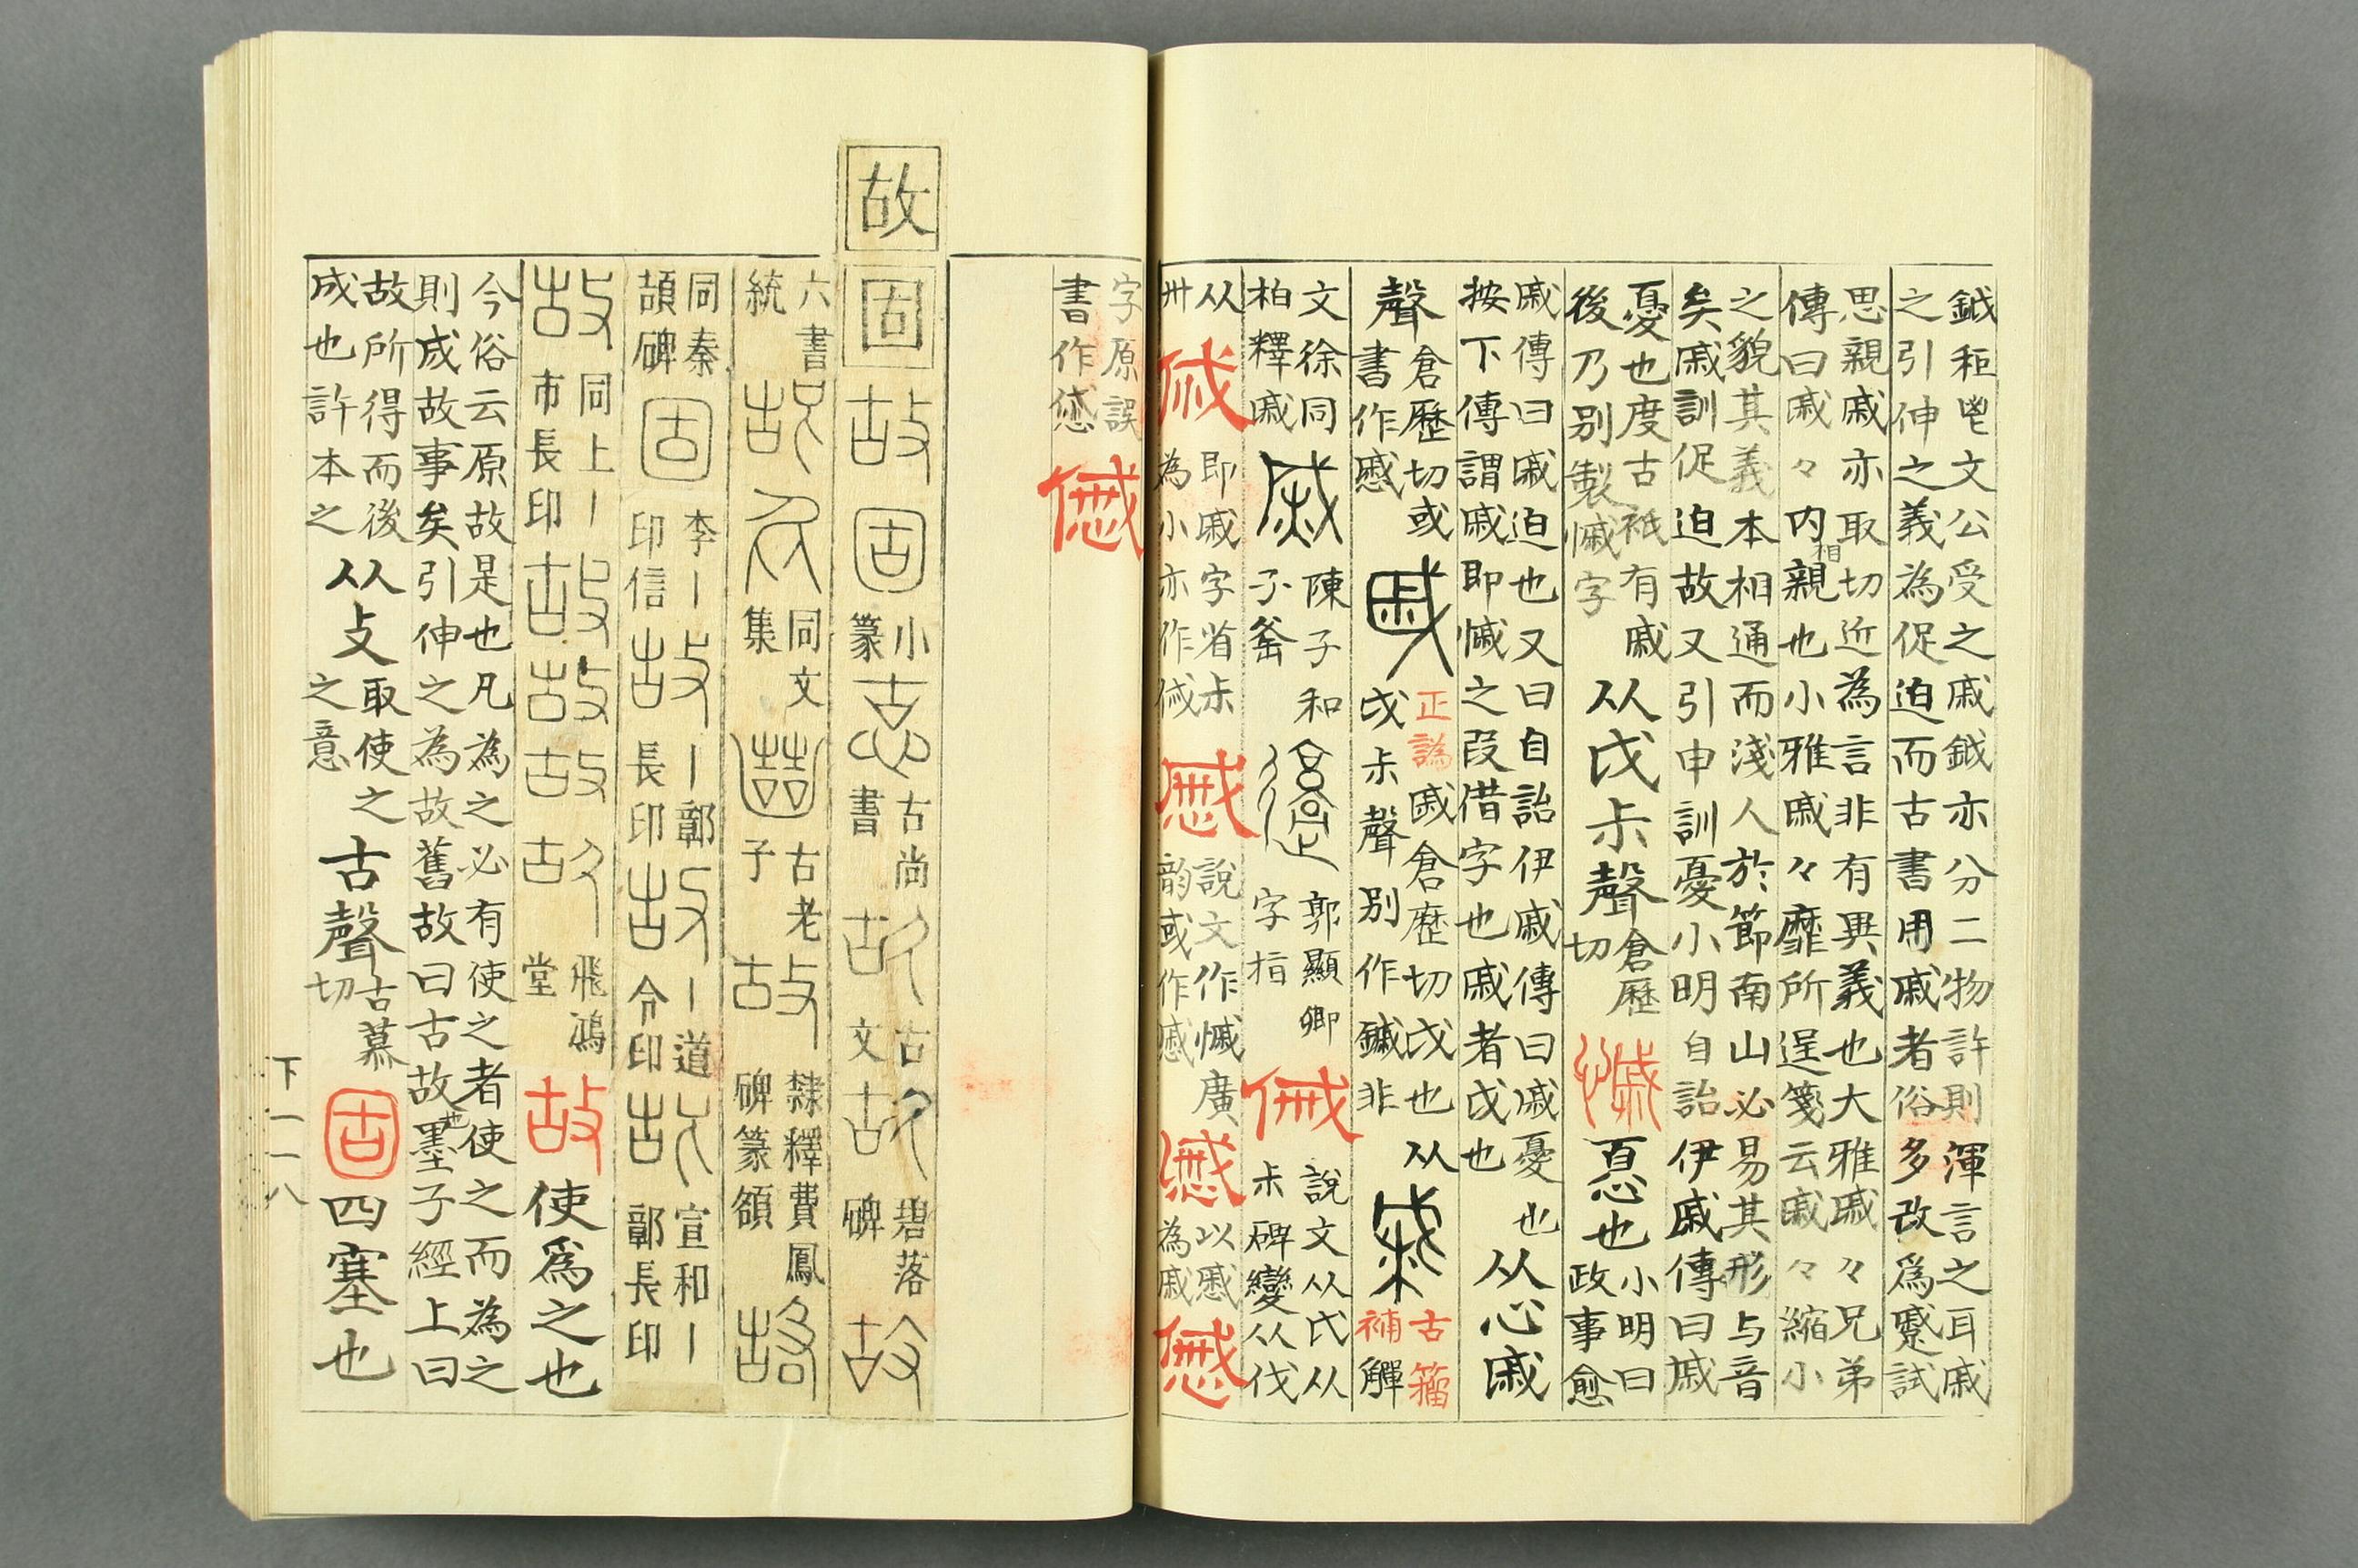 鉞秬鬯文公受之戚鉞亦分二物許則渾言之耳戚
之引伸之義為促迫而古書用戚者俗多改爲蹙試
思親戚亦取切近為言非有異義也大雅戚々兄弟
傳曰戚々內相親也小雅戚々靡所逞箋云戚々縮小
之貌其義本相通而淺人於節南山必易其形与音
矣戚訓促迫故又引申訓憂小明自詒伊戚傳曰戚
憂也度古衹有戚
後乃別製慽字
从戉尗聲
倉歷
切
慽
惪也
小明曰
政事愈
戚傳曰戚迫也又曰自詒伊戚傳曰戚憂也
按下傳謂戚即慽之叚借字也戚者戉也
从心戚
聲
倉歷切或
書作慼
戚
正譌戚倉歷切戉也从
戉尗聲別作鏚非
古籀
補觶
文徐同
柏釋戚
陳子和
子釜
郭顯卿
字指
說文从氏从
尗碑變从伐
从
卅
即戚字省尗
為小亦作
說文作慽廣
韵或作慼
以慼
為戚
字原誤
書作
故
固故固
小
篆
古尚
書
古
文
碧落
碑
六書
統
同文
集
古老
子
隸釋費鳳
碑篆額
同秦
頡碑
固
李丨
印信
故
丨鄣
長印
故
丨道
令印
宣和丨
鄣長印
故
同上丨
市長印
故故故故
飛鴻
堂
故
使爲之也
今俗云原故是也凡為之必有使之者使之而為之
則成故事矣引伸之為故舊故曰古故也墨子經上曰
故所得而後
成也許本之
从攴
取使之
之意
古聲
古慕
切
固
四塞也
下一一八